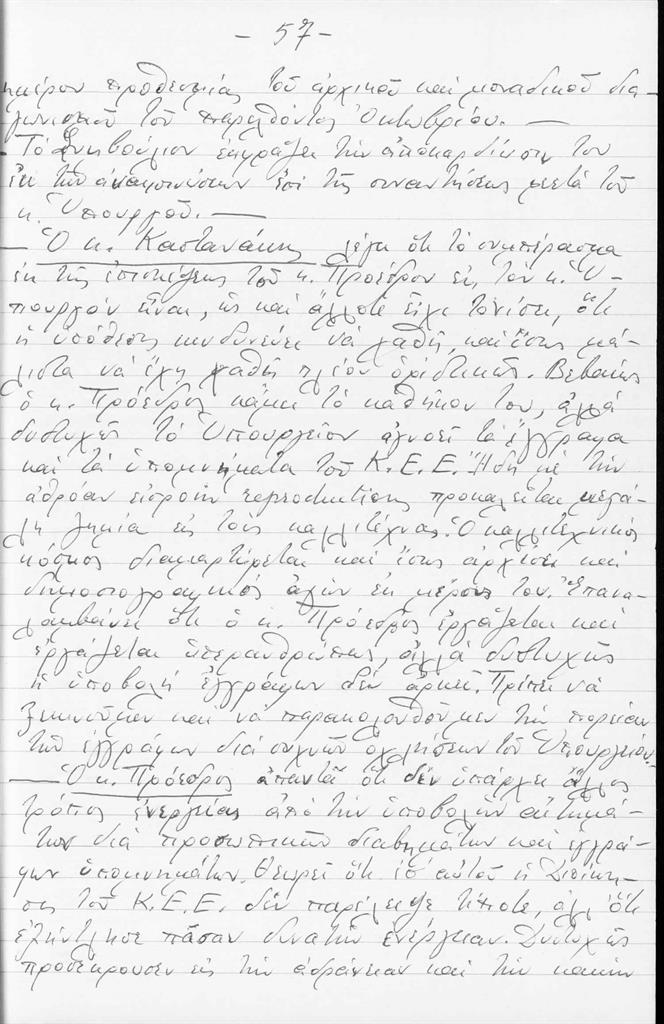 - 57 -
ημέρου προθεσμίας τοῦ ἀρχικοῦ καί μοναδικοῦ δια-
γωνισμοῦ τοῦ παρελθόντος Ὀκτωβρίου. —
- Τό Συμβούλιον ἐκφράζει τήν ἀπο
ἐκ τῶν ἀνακοινώσεων ἐπί τῆς συναντήσεως μετά τοῦ
κ. Ὑπουργοῦ. —
— Ὁ κ. Καστανάκης λέγει ὅτι τό συμπέρασμα
ἐκ τῆς ἐπισκέψεως τοῦ κ. Προέδρου εἰς τόν κ. Ὑ-
πουργόν εἶναι, ὡς καί ἄλλοτε εἶχε τονίσει, ὅτι
ἡ ὑπόθεσις κινδυνεύει νά χαθῆ, καί ἴσως μά-
λιστα νά ἔχη χαθῆ πλέον ὁριστικῶς. Βεβαίως
ὁ κ. Πρόεδρος κάμει τό καθῆκον του, ἀλλά
δυστυχῶς τό Ὑπουργεῖον ἀγνοεῖ τά ἔγγραφα
καί τά ὑπομνήματα τοῦ Κ.Ε.Ε. Ἤδη μέ τήν
ἀθρόαν εἰσροήν reproductions προκαλεῖται μεγά-
λη ζημία εἰς τούς καλλιτέχνας. Ὁ καλλιτεχνικός
κόσμος διαμαρτύρεται καί ἴσως ἀρχίσει καί
δημοσιογραφικός ἀγών ἐκ μέρους του. Ἐπανα-
λαμβάνει ὅτι ὁ κ. Πρόεδρος ἐργάζεται καί
ἐργάζεται ὑπερανθρώπως, ἀλλά δυστυχῶς
ἡ ὑποβολή ἐγγράφων δέν ἀρκεῖ. Πρέπει νά
ξεκινοῦμεν καί νά παρακολουθοῦμεν τήν πορείαν
τῶν ἐγγράφων διά συχνῶν ὀχλήσεων τοῦ Ὑπουργείου.
— Ὁ κ. Πρόεδρος ἀπαντᾶ ὅτι δέν ὑπάρχει ἄλλος
τρόπος ἐνεργείας ἀπό τήν ὑποβολήν αἰτημά-
των διά προσωπικῶν διαβημάτων καί ἐγγρά-
φων ὑπομνημάτων. Θεωρεῖ ὅτι ἐπ' αὐτοῦ ἡ Διοίκη-
σις τοῦ Κ.Ε.Ε. δέν παρέλειψε τίποτε, ἀλλ' ὅτι
ἐξήντλησε πᾶσαν δυνατήν ἐνέργειαν. Δυστυχῶς
προσέκρουσεν εἰς τήν ἀδράνειαν καί τήν κακήν